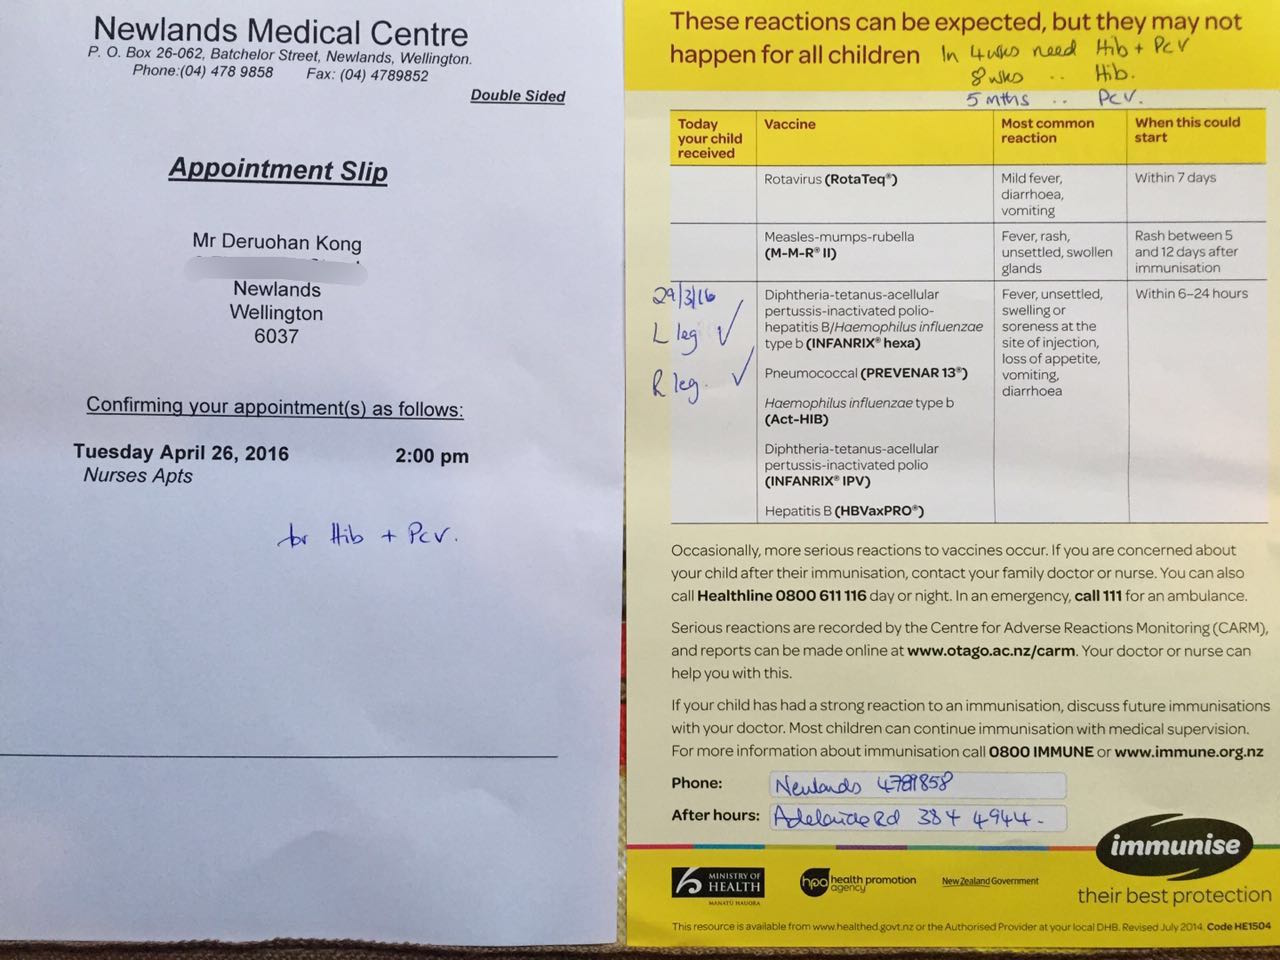 Newlands Medical Centre
P. O. Box 26-062, Batchelor Street, Newlands, Wellington.
Phone:(04) 478 9858 Fax: (04) 4789852
Double Sided
Appointment Slip
Mr Deruohan Kong
Newlands
Wellington
6037
Confirming your appointment(s) as follows:
Tuesday April 26, 2016 2:00 pm
Nurses Apts
for Hib + Pcv.
These reactions can be expected, but they may not
happen for all children In 4wks need Hib + Pcv
8wks .. Hib.
5 mths .. Pcv.
Today
your child
received
Vaccine
Most common
reaction
When this could
start
Rotavirus (RotaTeq®)
Mild fever,
diarrhoea,
vomiting
Within 7 days
Measles-mumps-rubella
(M-M-R® II)
Fever, rash,
unsettled, swollen
glands
Rash between 5
and 12 days after
immunisation
29/3/16
L leg ✓
R leg. ✓
Diphtheria-tetanus-acellular
pertussis-inactivated polio-
hepatitis B/Haemophilus influenzae
type b (INFANRIX® hexa)
Pneumococcal (PREVENAR 13®)
Haemophilus influenzae type b
(Act-HIB)
Diphtheria-tetanus-acellular
pertussis-inactivated polio
(INFANRIX® IPV)
Hepatitis B (HBVaxPRO®)
Fever, unsettled,
swelling or
soreness at the
site of injection,
loss of appetite,
vomiting,
diarrhoea
Within 6–24 hours
Occasionally, more serious reactions to vaccines occur. If you are concerned about
your child after their immunisation, contact your family doctor or nurse. You can also
call Healthline 0800 611 116 day or night. In an emergency, call 111 for an ambulance.
Serious reactions are recorded by the Centre for Adverse Reactions Monitoring (CARM),
and reports can be made online at www.otago.ac.nz/carm. Your doctor or nurse can
help you with this.
If your child has had a strong reaction to an immunisation, discuss future immunisations
with your doctor. Most children can continue immunisation with medical supervision.
For more information about immunisation call 0800 IMMUNE or www.immune.org.nz
Phone: Newlands 4789858
After hours: Adelaide Rd 384 4944.
immunise
their best protection
MINISTRY OF
HEALTH
MANATŪ HAUORA
hpa health promotion
agency
New Zealand Government
This resource is available from www.healthed.govt.nz or the Authorised Provider at your local DHB. Revised July 2014. Code HE1504